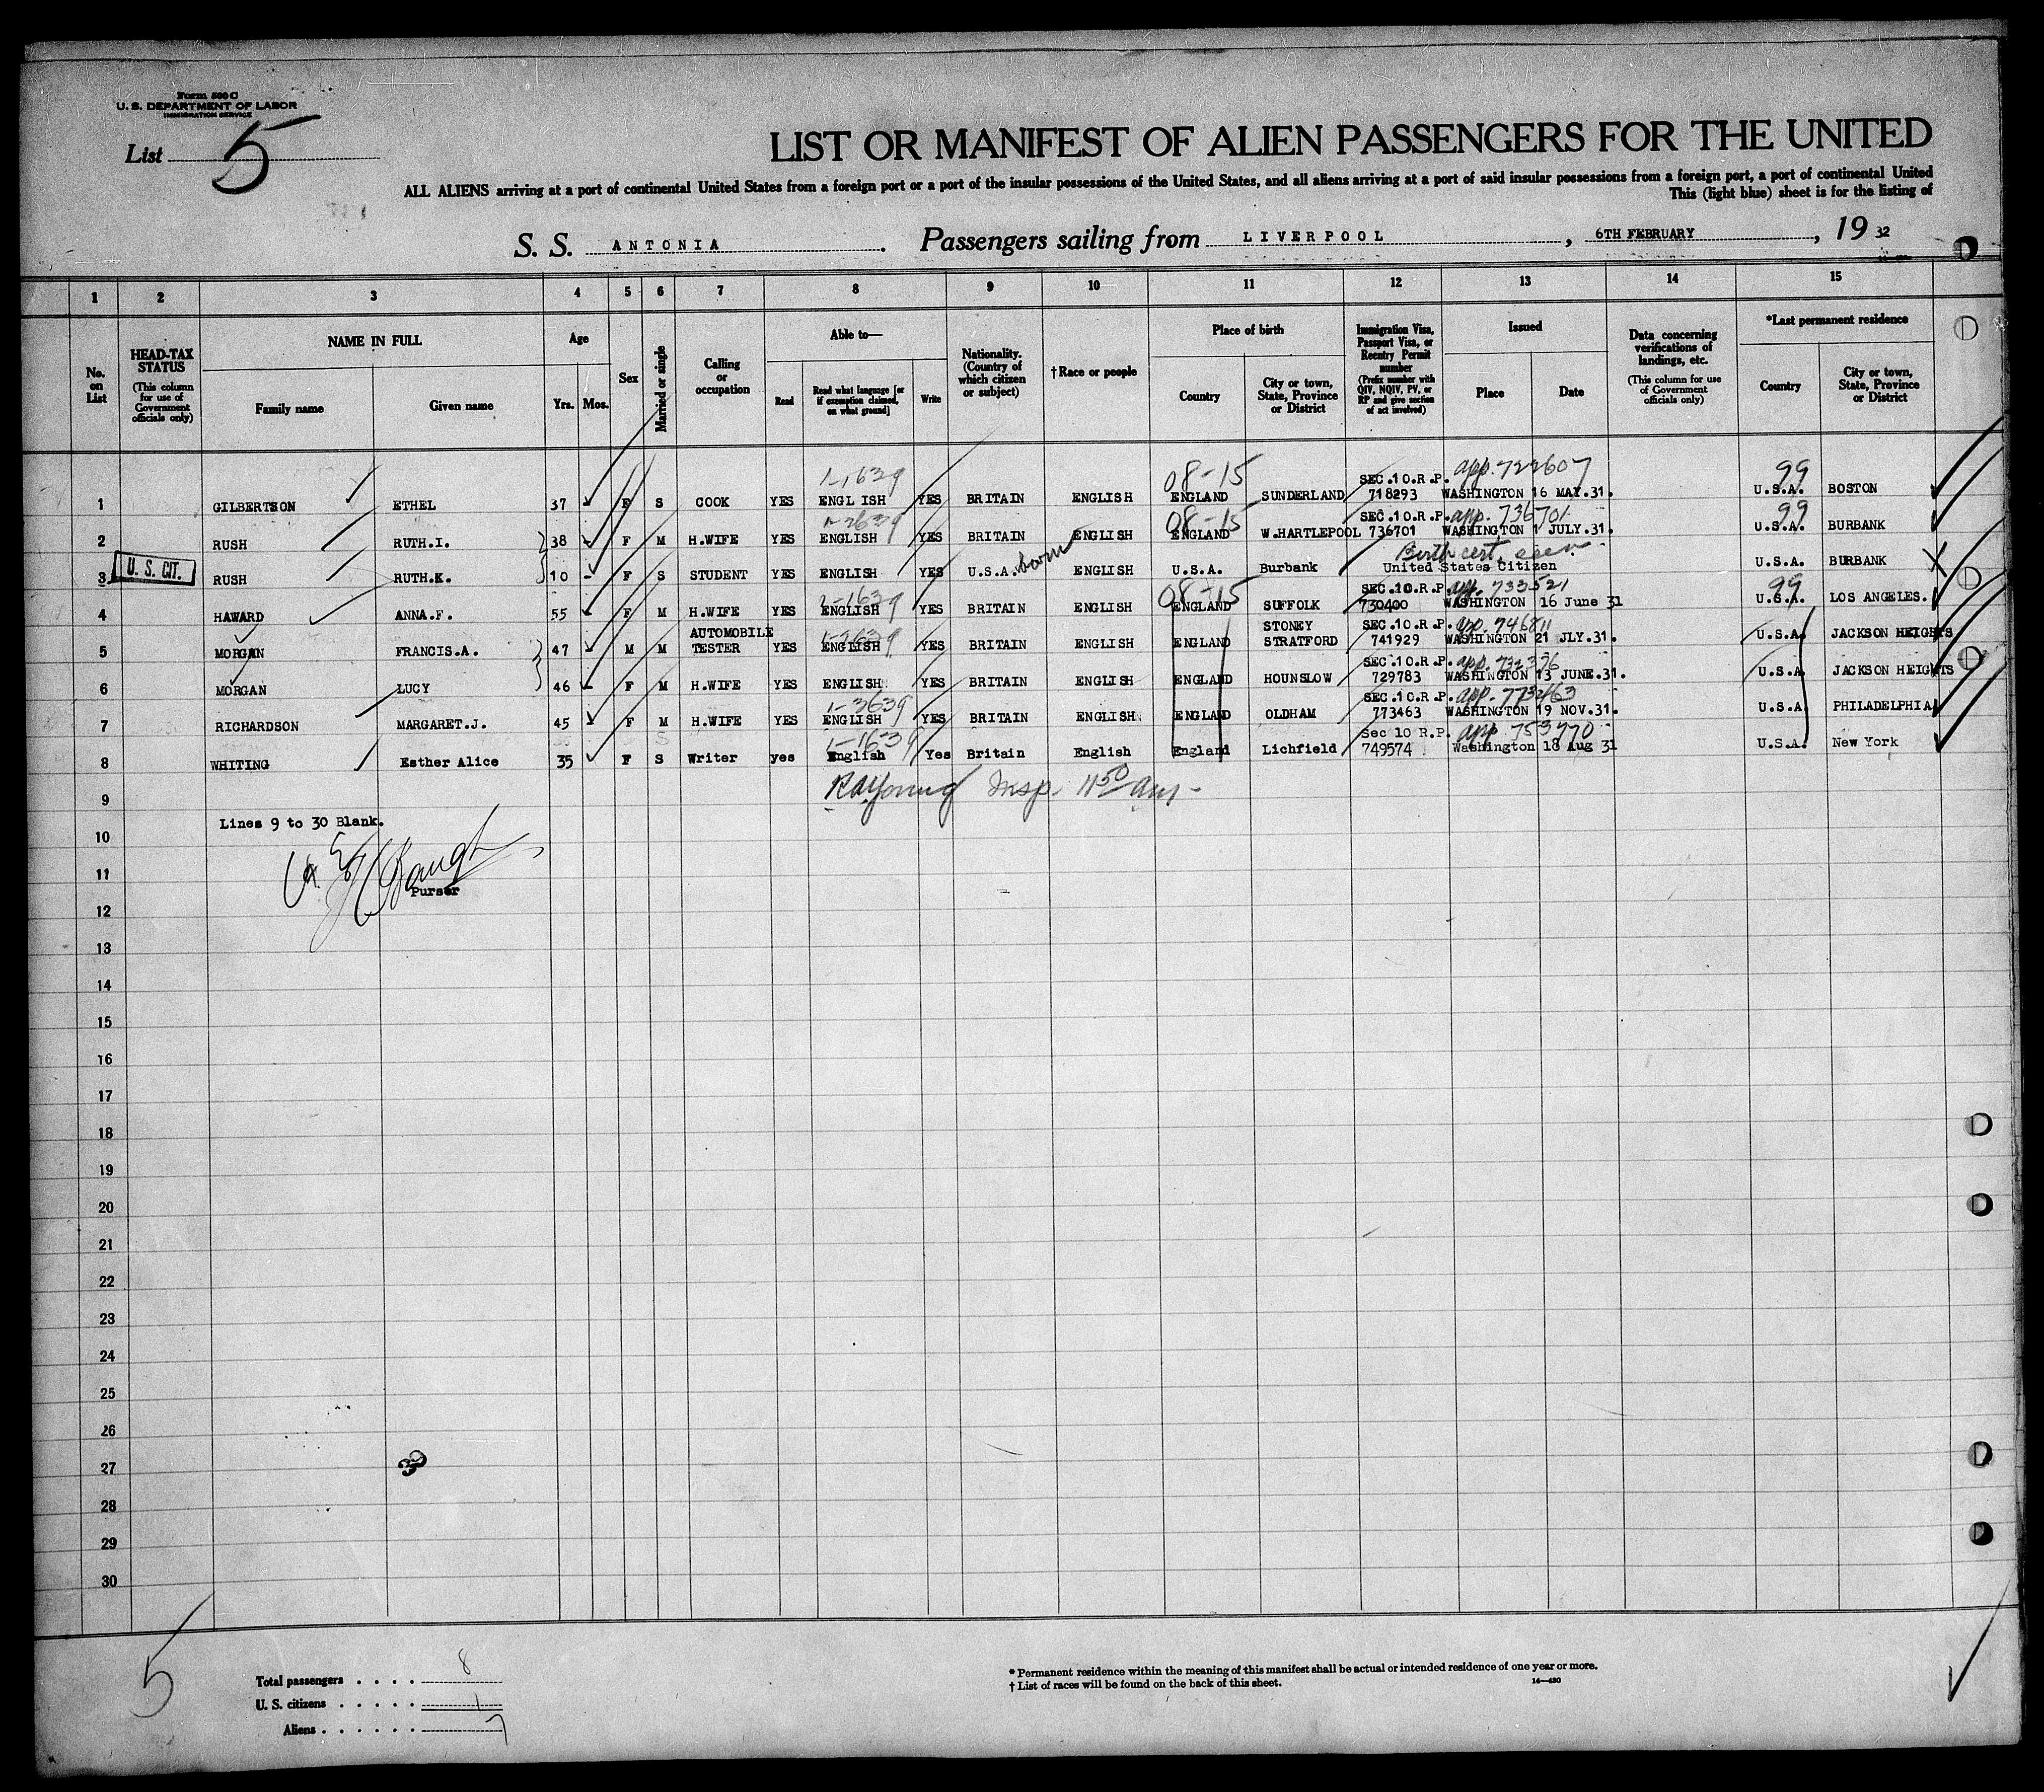 Form 500 C
U. S. DEPARTMENT OF LABOR
IMMIGRATION SERVICE
List 5
LIST OR MANIFEST OF ALIEN PASSENGERS FOR THE UNITED
ALL ALIENS arriving at a port of continental United States from a foreign port or a port of the insular possessions of the United States, and all aliens arriving at a port of said insular possessions from a foreign port, a port of continental United
This (light blue) sheet is for the listing of
S. S. ANTONIA. Passengers sailing from LIVERPOOL, 6TH FEBRUARY, 19 32
1 2 3 4 5 6 7 8 9 10 11 12 13 14 15
No. on List
HEAD-TAX STATUS (This column for use of Government officials only)
NAME IN FULL
Family name Given name
Age
Yrs. Mos.
Sex
Married or single
Calling or occupation
Able to—
Read Read what language [or if exemption claimed, on what ground] Write
Nationality. (Country of which citizen or subject)
†Race or people
Place of birth
Country City or town, State, Province or District
Immigration Visa, Passport Visa, or Reentry Permit number (Prefix number with QIV, NQIV, PV, or RP and give section of act involved)
Issued
Place Date
Data concerning verifications of landings, etc. (This column for use of Government officials only)
*Last permanent residence
Country City or town, State, Province or District
1-1639 08-15 SEC.10.R.P. app. 722607 99
1 GILBERTSON ETHEL 37 F S COOK YES ENGLISH YES BRITAIN ENGLISH ENGLAND SUNDERLAND 718293 WASHINGTON 16 MAY.31. U.S.A. BOSTON
1-2639 08-15 SEC.10.R.P. app. 736701 99
2 RUSH RUTH.I. 38 F M H.WIFE YES ENGLISH YES BRITAIN ENGLISH ENGLAND W.HARTLEPOOL 736701 WASHINGTON 1 JULY.31. U.S.A. BURBANK
born Birth cert. seen
U. S. CIT.
3 RUSH RUTH.K. 10 - F S STUDENT YES ENGLISH YES U.S.A. ENGLISH U.S.A. Burbank United States Citizen U.S.A. BURBANK
1-1639 08-15 SEC.10.R.P. app. 733521 99
4 HAWARD ANNA.F. 55 F M H.WIFE YES ENGLISH YES BRITAIN ENGLISH ENGLAND SUFFOLK 730400 WASHINGTON 16 June 31 U.S.A. LOS ANGELES.
AUTOMOBILE 1-2639 STONEY SEC.10.R.P. app. 746811
5 MORGAN FRANCIS.A. 47 M M TESTER YES ENGLISH YES BRITAIN ENGLISH ENGLAND STRATFORD 741929 WASHINGTON 21 JLY.31. U.S.A. JACKSON HEIGHTS
SEC.10.R.P. app. 732376
6 MORGAN LUCY 46 F M H.WIFE YES ENGLISH YES BRITAIN ENGLISH ENGLAND HOUNSLOW 729783 WASHINGTON 13 JUNE.31. U.S.A. JACKSON HEIGHTS
1-3639 SEC.10.R.P. app. 773463
7 RICHARDSON MARGARET.J. 45 F M H.WIFE YES ENGLISH YES BRITAIN ENGLISH ENGLAND OLDHAM 773463 WASHINGTON 19 NOV.31. U.S.A. PHILADELPHIA
1-1639 Sec 10 R.P. app 753770
8 WHITING Esther Alice 35 F S Writer yes English Yes Britain English England Lichfield 749574 Washington 18 Aug 31 U.S.A. New York
RAYoung Insp. 1150 am-
9
Lines 9 to 30 Blank.
10
11
Purser
12
13
14
15
16
17
18
19
20
21
22
23
24
25
26
27
28
29
30
5
Total passengers . . . . 8
U. S. citizens . . . . . 1
Aliens . . . . . . 7
* Permanent residence within the meaning of this manifest shall be actual or intended residence of one year or more.
† List of races will be found on the back of this sheet.
14—430